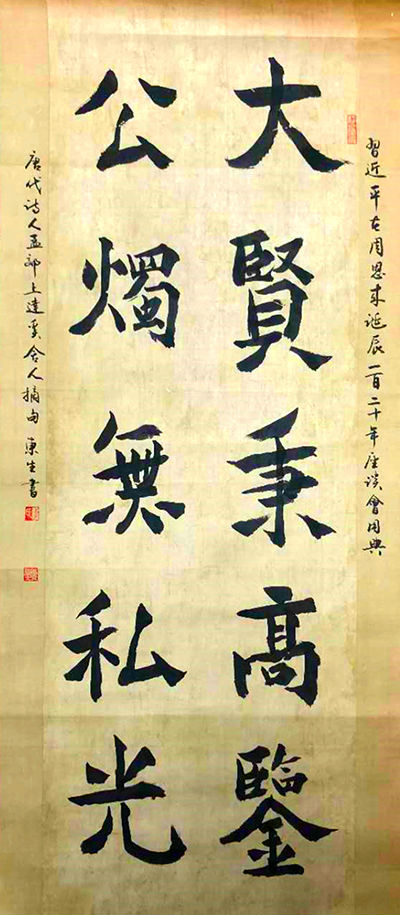 習近平在周恩来誕辰一百二十年座談會用典
大賢秉高鑒
公燭無私光
唐代诗人孟郊上達奚舍人摘句 東生書